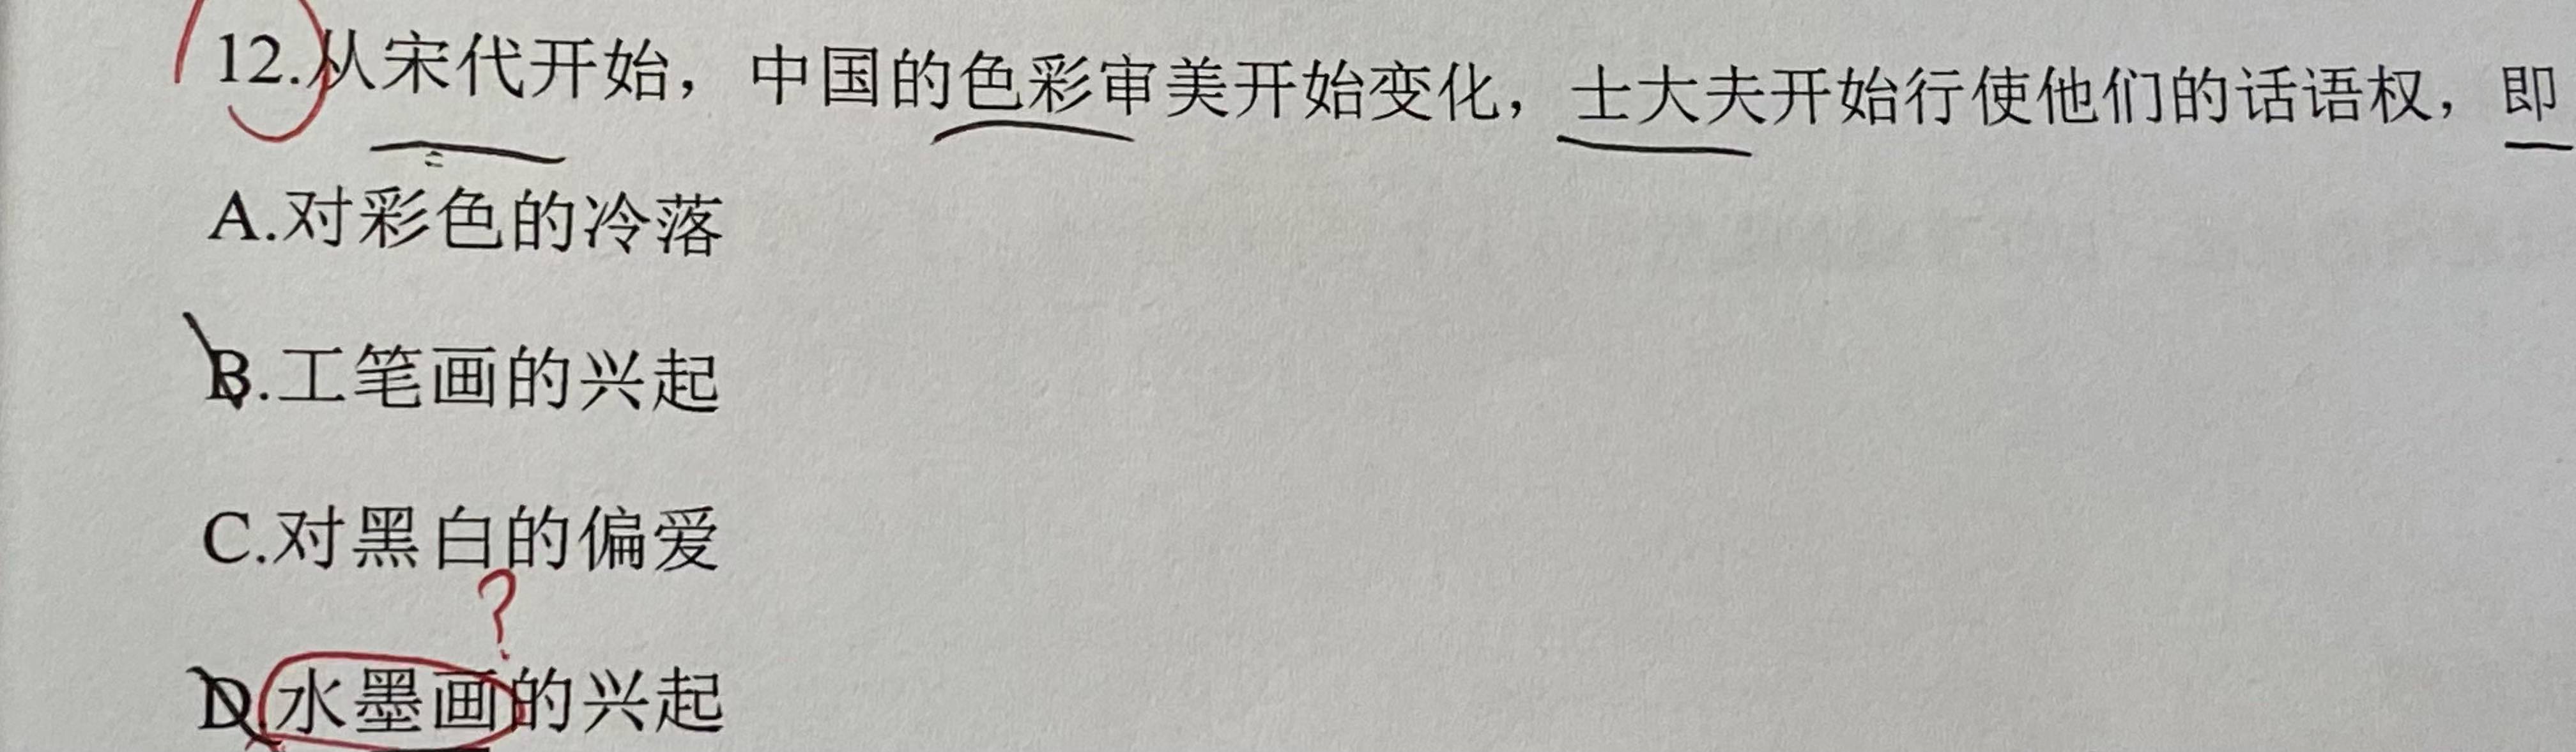 12.从宋代开始，中国的色彩审美开始变化，士大夫开始行使他们的话语权，即
A.对彩色的冷落
B.工笔画的兴起
C.对黑白的偏爱
?
D.水墨画的兴起